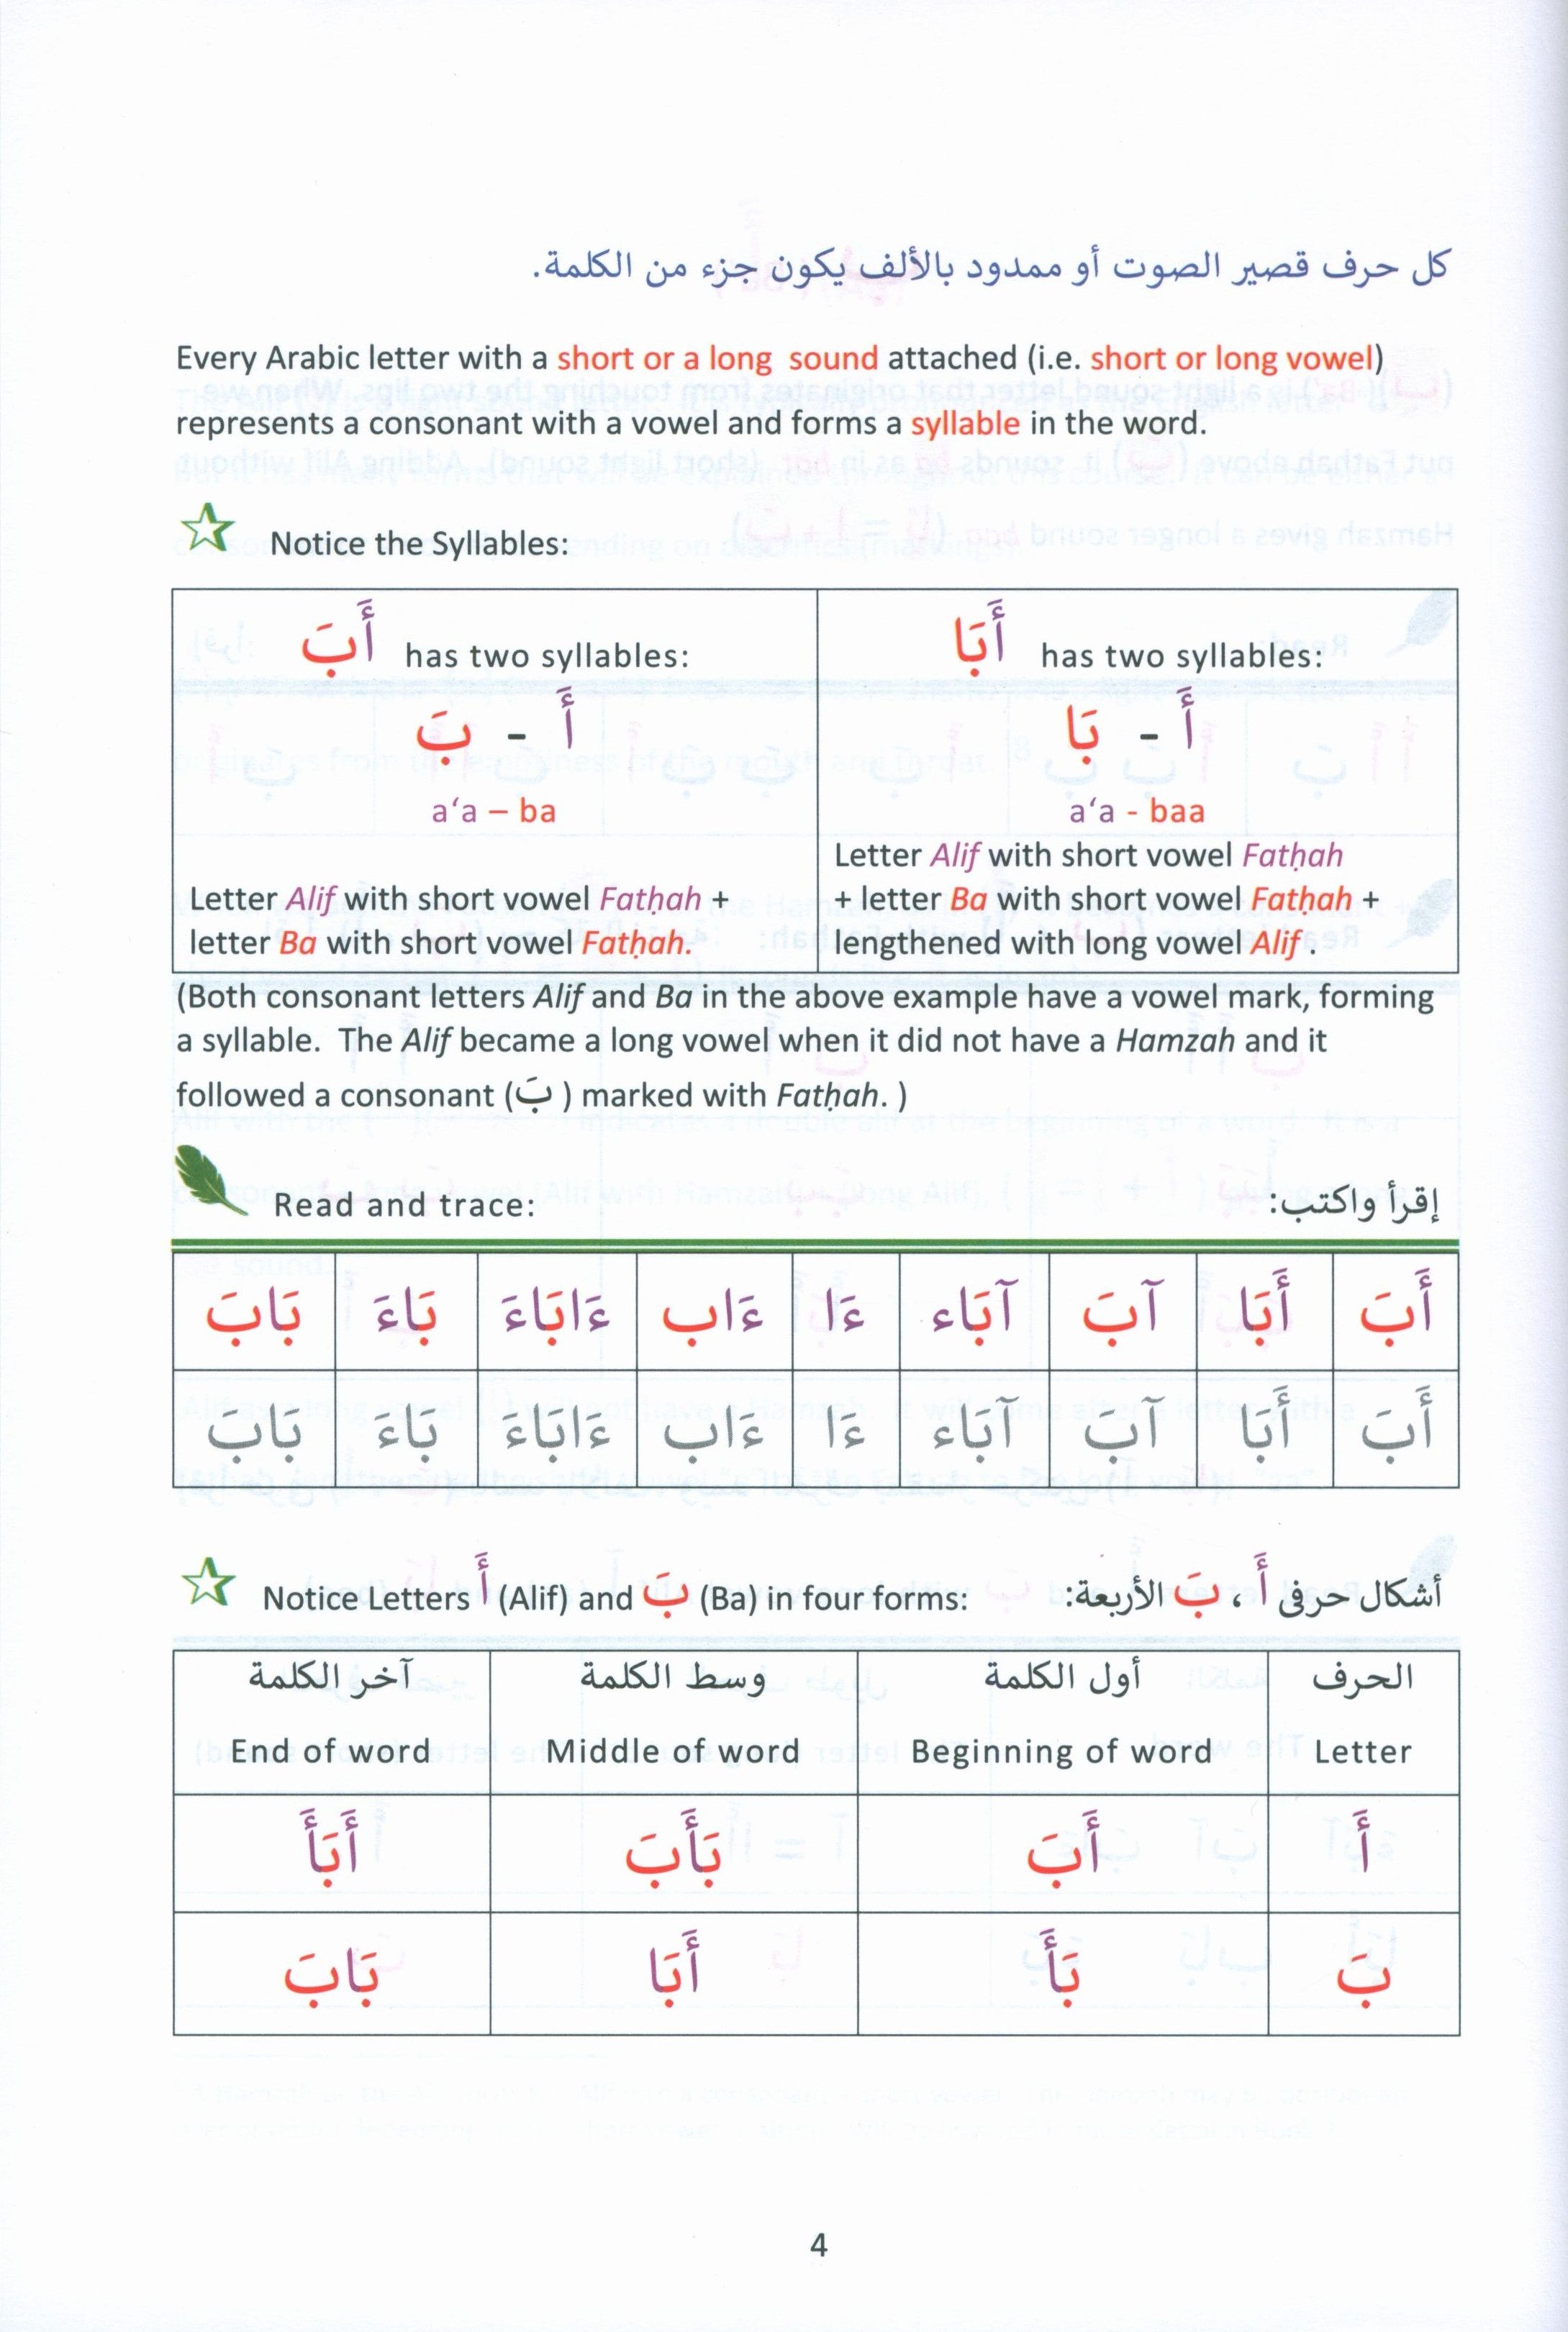 كل حرف قصير الصوت أو ممدود بالألف يكون جزء من الكلمة.
Every Arabic letter with a short or a long sound attached (i.e. short or long vowel)
represents a consonant with a vowel and forms a syllable in the word.
Notice the Syllables:
أَبَ has two syllables:
أَ - بَ
a‘a – ba
Letter Alif with short vowel Fatḥah +
letter Ba with short vowel Fatḥah.
أَبَا has two syllables:
أَ - بَا
a‘a - baa
Letter Alif with short vowel Fatḥah
+ letter Ba with short vowel Fatḥah +
lengthened with long vowel Alif .
(Both consonant letters Alif and Ba in the above example have a vowel mark, forming
a syllable. The Alif became a long vowel when it did not have a Hamzah and it
followed a consonant (بَ ) marked with Fatḥah. )
Read and trace: إقرأ واكتب:
أَبَ أَبَا آبَ آبَاء ءَا ءَاب ءَابَاءَ بَاءَ بَابَ
أَبَ أَبَا آبَ آبَاء ءَا ءَاب ءَابَاءَ بَاءَ بَابَ
Notice Letters أَ (Alif) and بَ (Ba) in four forms: أشكال حرفى أَ ، بَ الأربعة:
الحرف أول الكلمة وسط الكلمة آخر الكلمة
End of word Middle of word Beginning of word Letter
أَ أَبَ بَأَبَ أَبَأَ
بَ بَأَ أَبَا بَابَ
4